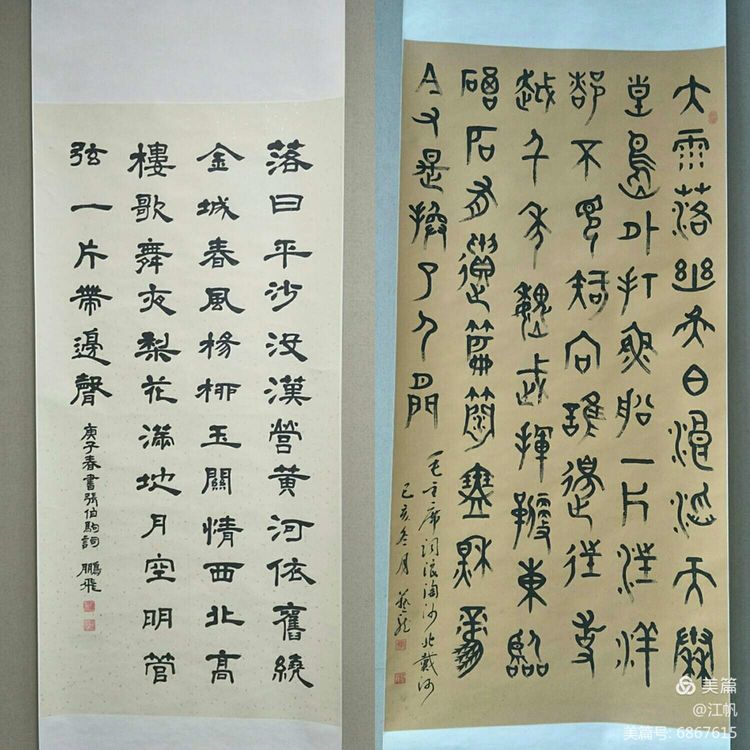 落日平沙没漢營黄河依舊繞
金城春風楊柳玉關情西北高
樓歌舞夜梨花滿地月空明管
弦一片帶邊聲
庚子春書張伯駒詞 鵬飛
大雨落幽燕白浪滔天秦
皇島外打魚船一片汪洋
都不見知向誰邊往事
越千年魏武揮鞭東臨
碣石有遺篇蕭瑟秋風
今又是換了人間
毛主席词浪淘沙北戴河
己亥冬月
美篇
@江帆
美篇号: 6867615